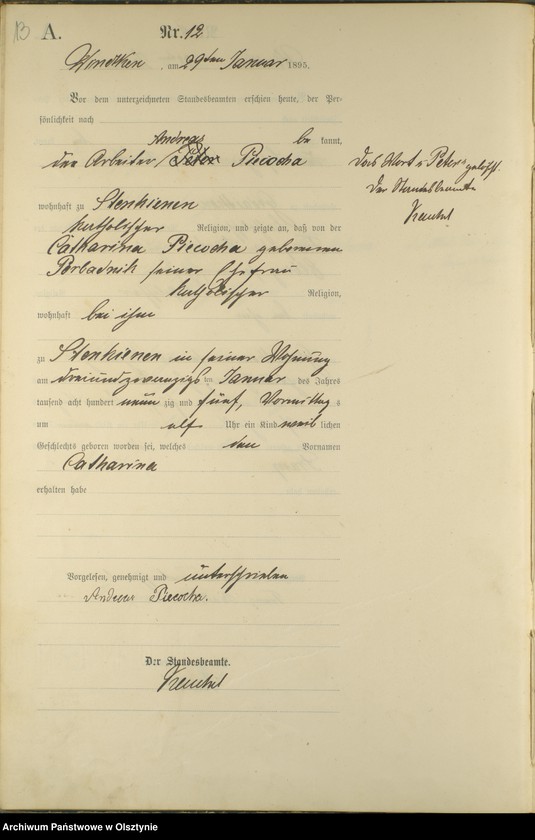 13 A. Nr. 12
am 29ten Januar 1895.
Vor dem unterzeichneten Standesbeamten erschien heute, der Per-
sönlichkeit nach
Andreas be kannt,
der Arbeiter Peter Piecocha
wohnhaft zu Stenkienen
katholischer Religion, und zeigte an, daß von der
Catharina Piecocha geborenen
seiner Ehefrau
katholischer Religion,
wohnhaft bei ihm
zu Stenkienen in seiner Wohnung
am dreiundzwanzigsten Januar des Jahres
tausend acht hundert neun zig und fünf, Vormittag s
um elf Uhr ein Kind weib lichen
Geschlechts geboren worden sei, welches den Vornamen
Catharina
erhalten habe
Vorgelesen, genehmigt und unterschrieben
Andreas Piecocha.
Der Standesbeamte.
Das Wort "Peter" gelöscht.
Der Standesbeamte
Archiwum Państwowe w Olsztynie